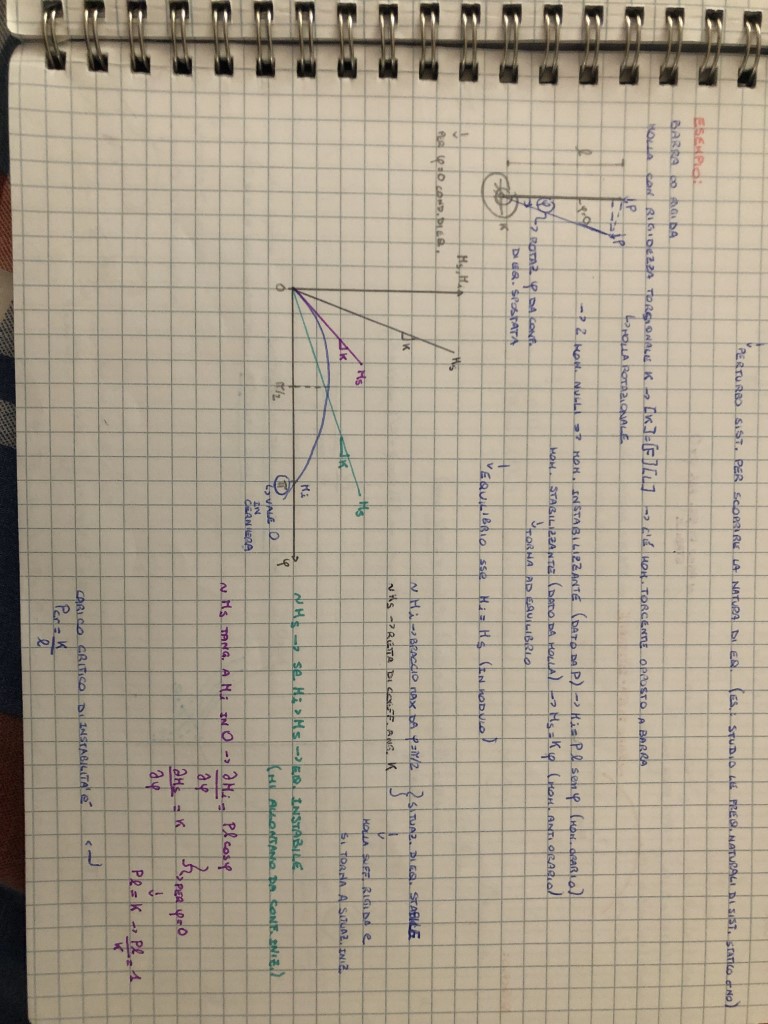 ↳ PERTURBO SIST. PER SCOPRIRE LA NATURA DI EQ. (ES.: STUDIO LE FREQ. NATURALI DI SIST. STATICO O NO)
ESEMPIO:
BARRA ∞ RIGIDA
MOLLA CON RIGIDEZZA TORSIONALE K → [K]=[F][L] → C'È MOM. TORCENTE OPPOSTO A BARRA
↳ MOLLA ROTAZIONALE
P
P
l
φ=0
φ
K
↳ ROTAZ φ DA CONF.
DI EQ. SPOSTATA
→ 2 MOM. NULLI → MOM. INSTABILIZZANTE (DATO DA P) → Mi = Pl senφ (MOM. ORARIO)
MOM. STABILIZZANTE (DATO DA MOLLA) → Ms = Kφ (MOM. ANTIORARIO)
↓ TORNA AD EQUILIBRIO
↓ EQUILIBRIO SSE Mi = Ms (IN MODULO)
PER φ=0 COND. DI EQ.
Ms, Mi
Ms
K
Ms
K
Ms
K
Mi
0
π/2
π
φ
↳ VALE 0
IN
CERNIERA
~ Mi → BRACCIO MAX DA φ=π/2
~ Ms → RETTA DI COEFF. ANG. K
} SITUAZ. DI EQ. STABILE
↓
MOLLA SUFF. RIGIDA E
SI TORNA A SITUAZ. INIZ
~ Ms → SE Mi > Ms → EQ. INSTABILE
(MI ALLONTANO DA CONF. INIZ.)
~ Ms TANG. A Mi IN 0 → ∂Mi/∂φ = Pl cosφ
∂Ms/∂φ = K
} PER φ=0
↓
Pl = K → Pl/K = 1
CARICO CRITICO DI INSTABILITA' È
Pcr = K/l